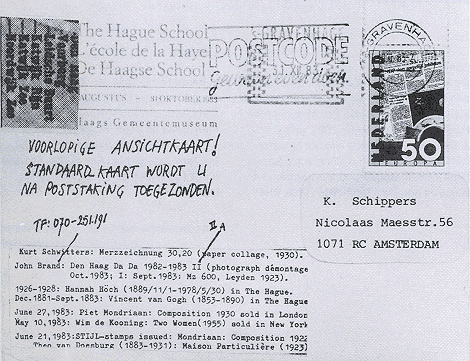 The Hague School
L'école de la Haye
De Haagse School
AUGUSTUS - 31 OKTOBER 1983
Haags Gemeentemuseum
'S-GRAVENHAGE
POSTCODE
GRAVENHAGE
NEDERLAND
50
EUROPA
VOORLOPIGE ANSICHTKAART!
STANDAARD KAART WORDT U
NA POSTSTAKING TOEGEZONDEN.
TF: 070-251.191
II A
K. Schippers
Nicolaas Maesstr.56
1071 RC AMSTERDAM
Kurt Schwitters: Merzzeichnung 30,20 (paper collage, 1930).
John Brand: Den Haag Da Da 1982-1983 II (photograph démontage
Oct.1983; I: Sept.1983: Mz 600, Leyden 1923).
1926-1928: Hannah Höch (1889/11/1-1978/5/30) in The Hague.
Dec.1881-Sept.1883: Vincent van Gogh (1853-1890) in The Hague
June 27,1983: Piet Mondriaan: Composition 1930 sold in London
May 10,1983: Wim de Kooning: Two Women(1955) sold in New York
June 21,1983:STIJL-stamps issued: Mondriaan: Composition 1922
Theo van Doesburg (1883-1931): Maison Particulière (1923)